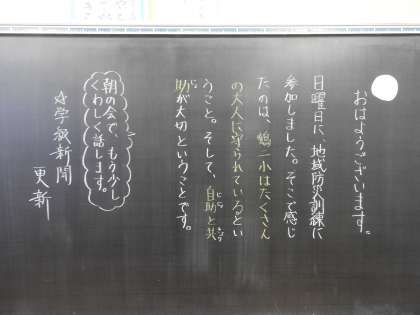 おはようございます。
日曜日に、地域防災訓練に
参加しました。そこで感じ
たのは、鶴一小はたくさん
の大人に守られているとい
うこと。そして、自助と共
助が大切ということです。
朝の会で、もう少し
くわしく話します。
☆学級新聞
更新